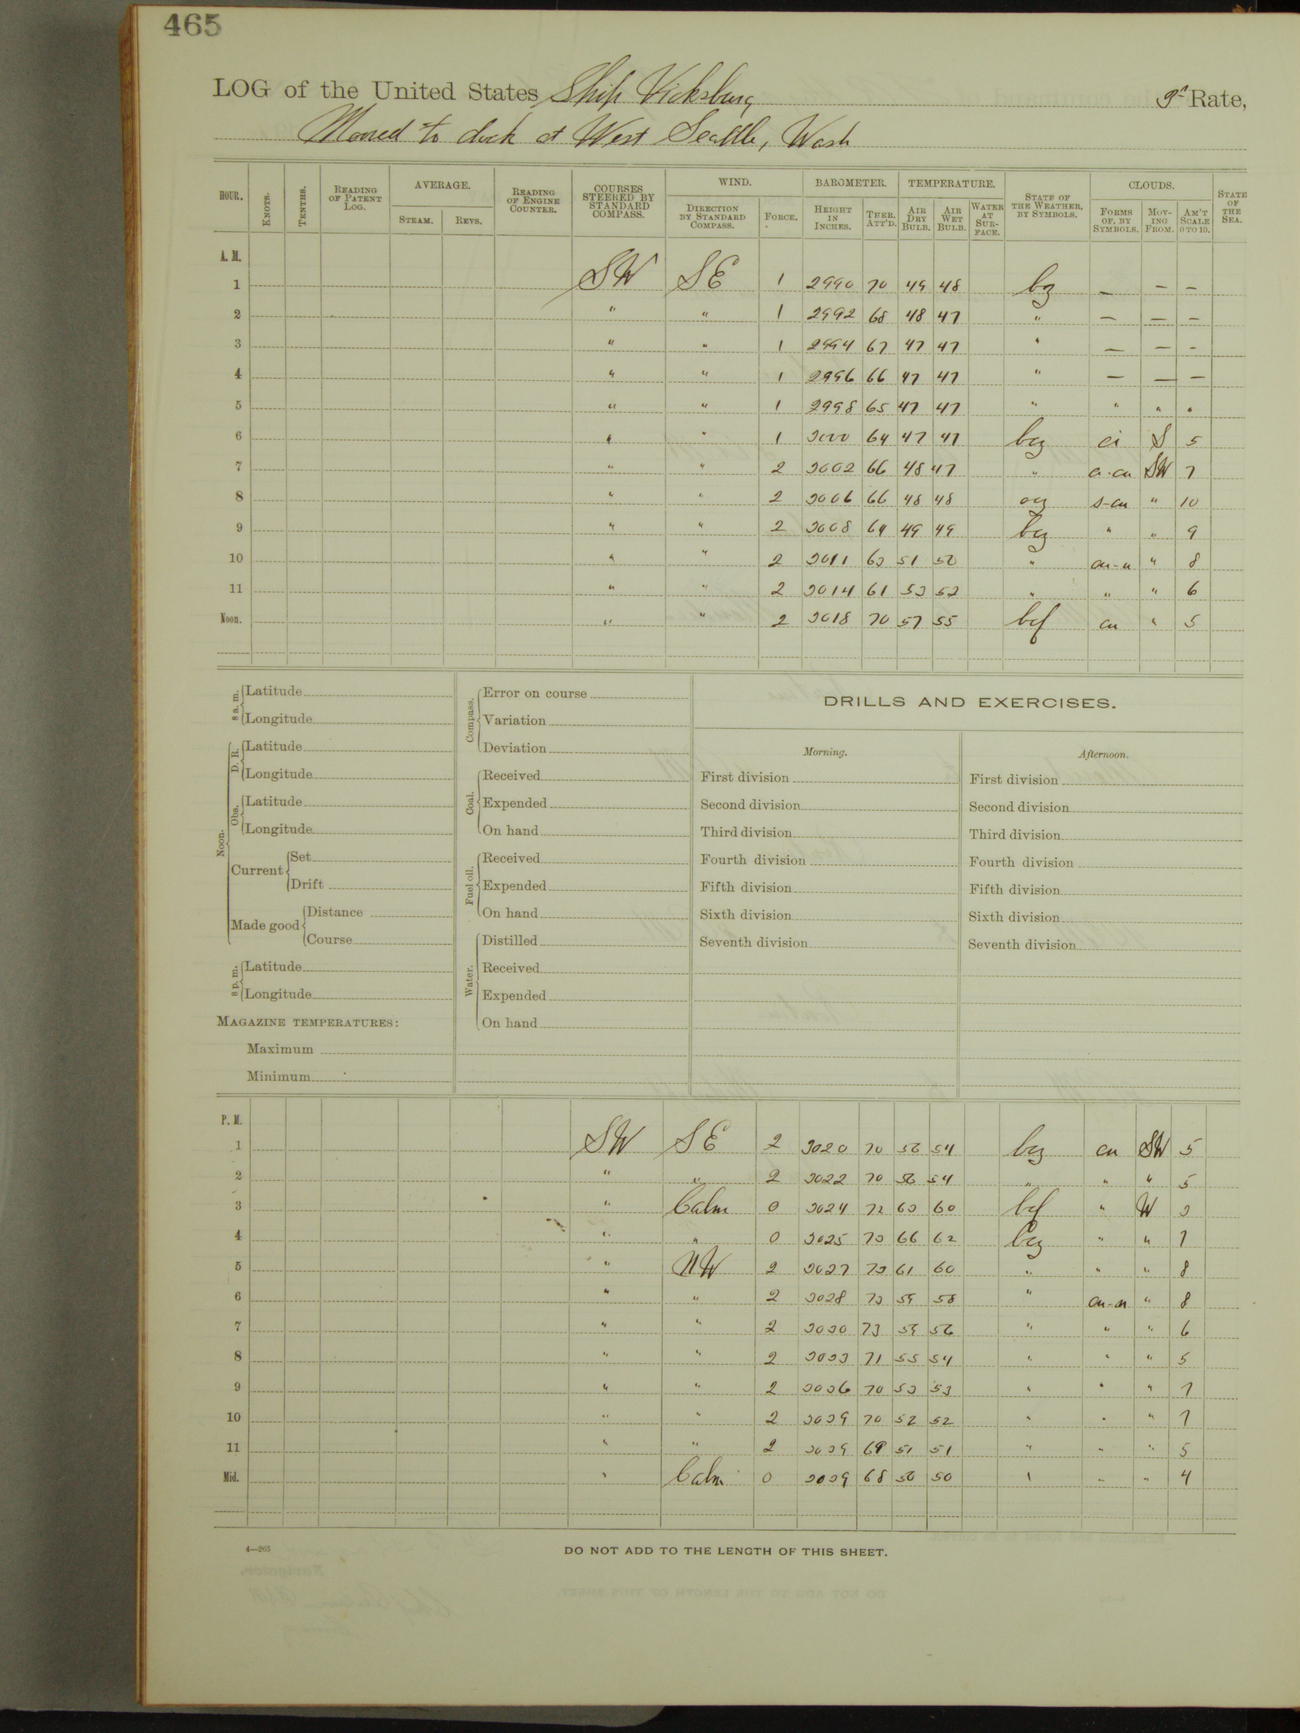 465
LOG of the United States Ship Vicksburg 3d Rate,
Moored to dock at West Seattle, Wash
HOUR. KNOTS. TENTHS. READING OF PATENT LOG. AVERAGE. STEAM. REVS. READING OF ENGINE COUNTER. COURSES STEERED BY STANDARD COMPASS. WIND. DIRECTION BY STANDARD COMPASS. FORCE. BAROMETER. HEIGHT IN INCHES. THER. ATT'D. TEMPERATURE. AIR DRY BULB. AIR WET BULB. WATER AT SURFACE. STATE OF THE WEATHER, BY SYMBOLS. CLOUDS. FORMS OF, BY SYMBOLS. MOVING FROM. AM'T SCALE 0 TO 10. STATE OF THE SEA.
A. M.
1 SW SE 1 2990 70 49 48 bz — — —
2 " " 1 2992 68 48 47 " — — —
3 " " 1 2994 67 47 47 " — — -
4 " " 1 2996 66 47 47 " — — —
5 " " 1 2998 65 47 47 " " " "
6 " " 1 3000 64 47 47 bcz ci S 5
7 " " 2 3002 66 48 47 " SW 7
8 " " 2 3006 66 48 48 oz s-cu " 10
9 " " 2 3008 64 49 49 bcz " " 9
10 " " 2 3011 63 51 50 " cu-n " 8
11 " " 2 3014 61 53 52 " " " 6
Noon. " " 2 3018 70 57 55 bcf cu " 5
8 a. m. Latitude
Longitude
Noon. D. R. Latitude
Longitude
Obs. Latitude
Longitude
Current Set
Drift
Made good Distance
Course
8 p. m. Latitude
Longitude
MAGAZINE TEMPERATURES:
Maximum
Minimum
Compass. Error on course
Variation
Deviation
Coal. Received
Expended
On hand
Fuel oil. Received
Expended
On hand
Water. Distilled
Received
Expended
On hand
DRILLS AND EXERCISES.
Morning.
First division
Second division
Third division
Fourth division
Fifth division
Sixth division
Seventh division
Afternoon.
First division
Second division
Third division
Fourth division
Fifth division
Sixth division
Seventh division
P. M.
1 SW SE 2 3020 70 56 54 bcz cu SW 5
2 " " 2 3022 70 56 54 " " " 5
3 " Calm 0 3024 72 63 60 bcf " W 3
4 " " 0 3025 73 66 62 bcz " " 7
5 " NW 2 3027 73 61 60 " " " 8
6 " " 2 3028 73 59 58 " cu-n " 8
7 " " 2 3030 73 59 56 " " " 6
8 " " 2 3033 71 55 54 " " " 5
9 " " 2 3036 70 53 53 " " " 7
10 " " 2 3039 70 52 52 " " " 7
11 " " 2 3039 69 51 51 " " " 5
Mid. " Calm 0 3039 68 50 50 " " " 4
4—265
DO NOT ADD TO THE LENGTH OF THIS SHEET.